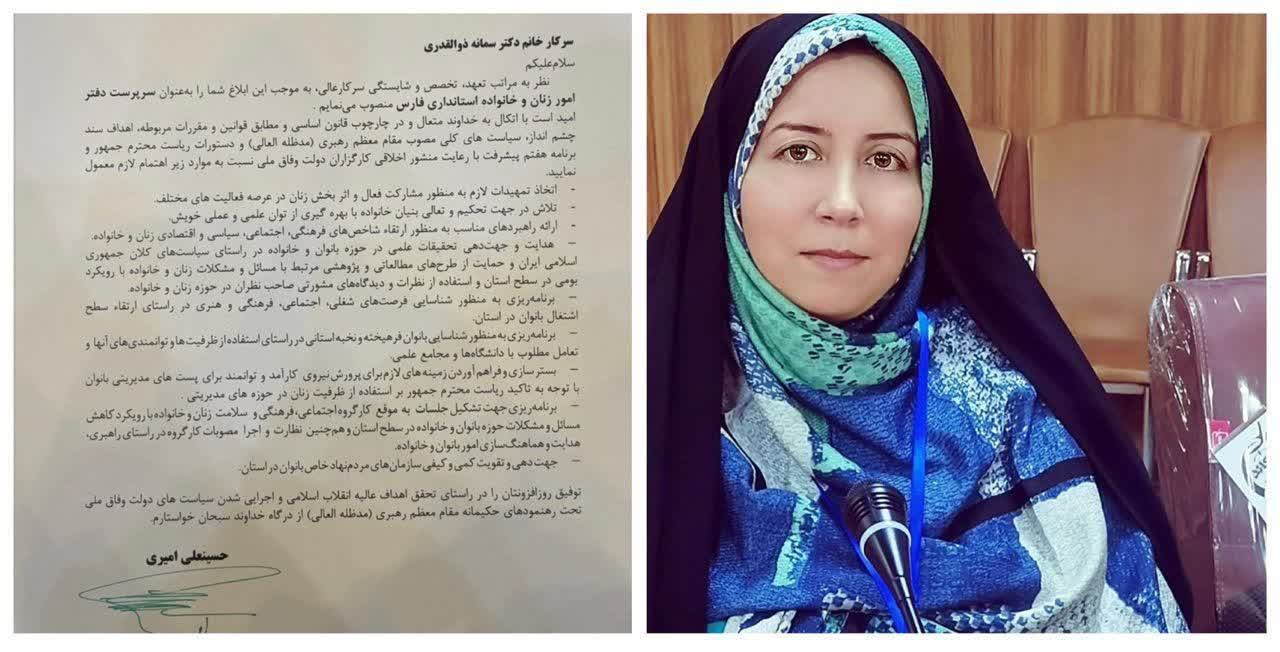 سرکار خانم دکتر سمانه ذوالقدری
سلام‌علیکم
نظر به مراتب تعهد، تخصص و شایستگی سرکارعالی، به موجب این ابلاغ شما را به‌عنوان سرپرست دفتر
امور زنان و خانواده استانداری فارس منصوب می‌نمایم .
امید است با اتکال به خداوند متعال و در چارچوب قانون اساسی و مطابق قوانین و مقررات مربوطه، اهداف سند
چشم انداز، سیاست های کلی مصوب مقام معظم رهبری (مدظله العالی) و دستورات ریاست محترم جمهور و
برنامه هفتم پیشرفت با رعایت منشور اخلاقی کارگزاران دولت وفاق ملی نسبت به موارد زیر اهتمام لازم معمول
نمایید.
- اتخاذ تمهیدات لازم به منظور مشارکت فعال و اثر بخش زنان در عرصه فعالیت های مختلف.
- تلاش در جهت تحکیم و تعالی بنیان خانواده با بهره گیری از توان علمی و عملی خویش.
- ارائه راهبردهای مناسب به منظور ارتقاء شاخص‌های فرهنگی، اجتماعی، سیاسی و اقتصادی زنان و خانواده.
– هدایت و جهت‌دهی تحقیقات علمی در حوزه بانوان و خانواده در راستای سیاست‌های کلان جمهوری
اسلامی ایران و حمایت از طرح‌های مطالعاتی و پژوهشی مرتبط با مسائل و مشکلات زنان و خانواده با رویکرد
بومی در سطح استان و استفاده از نظرات و دیدگاه‌های مشورتی صاحب نظران در حوزه زنان و خانواده.
– برنامه‌ریزی به منظور شناسایی فرصت‌های شغلی، اجتماعی، فرهنگی و هنری در راستای ارتقاء سطح
اشتغال بانوان در استان.
– برنامه‌ریزی به منظور شناسایی بانوان فرهیخته و نخبه استانی در راستای استفاده از ظرفیت ها و توانمندی‌های آنها و
تعامل مطلوب با دانشگاه‌ها و مجامع علمی.
– بستر سازی و فراهم آوردن زمینه های لازم برای پرورش نیروی کارآمد و توانمند برای پست های مدیریتی بانوان
با توجه به تاکید ریاست محترم جمهور بر استفاده از ظرفیت زنان در حوزه های مدیریتی .
– برنامه‌ریزی جهت تشکیل جلسات به موقع کارگروه اجتماعی، فرهنگی و سلامت زنان و خانواده با رویکرد کاهش
مسائل و مشکلات حوزه بانوان و خانواده در سطح استان و هم‌چنین نظارت و اجرا مصوبات کارگروه در راستای راهبری،
هدایت و هماهنگ‌سازی امور بانوان و خانواده.
– جهت‌دهی و تقویت کمی و کیفی سازمان‌های مردم‌نهاد خاص بانوان در استان.
توفیق روزافزونتان را در راستای تحقق اهداف عالیه انقلاب اسلامی و اجرایی شدن سیاست های دولت وفاق ملی
تحت رهنمودهای حکیمانه مقام معظم رهبری (مدظله العالی) از درگاه خداوند سبحان خواستارم.
حسینعلی امیری